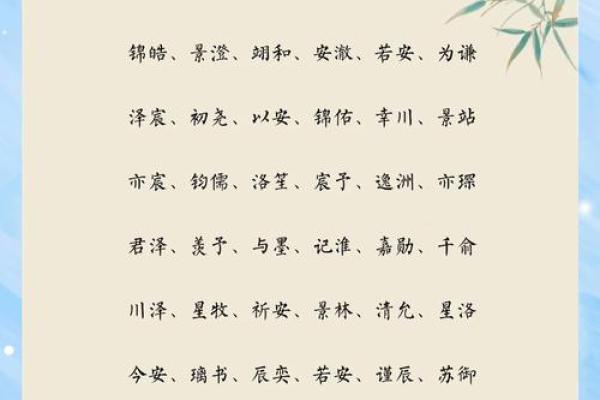 锦皓、景澄、翊和、安澈、若安、为谦
泽宸、初尧、以安、锦佑、幸川、景站
亦宸、钧儒、洛笙、宸予、逸洲、亦琛
君泽、羡予、与墨、记淮、嘉勋、千俞
川泽、星牧、祈安、景林、清允、星洛
今安、璃书、辰奕、若安、谨辰、苏御